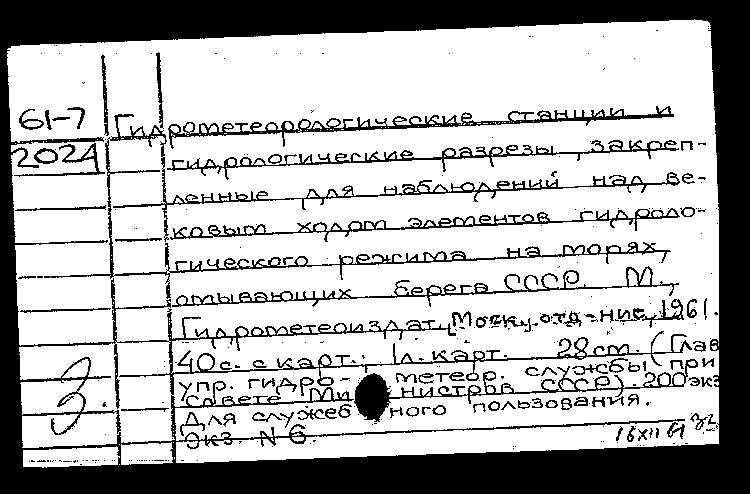 61-7 Гидрометеорологические станции и
2024 гидрологические разрезы, закреп-
ленные для наблюдений над ве-
ковым ходом элементов гидроло-
гического режима на морях,
омывающих берега СССР. М.,
Гидрометеоиздат, Моск. отд-ние, 1961.
40с. с карт.; 1л. карт. 28см. (Глав
упр. гидро- метеор. службы при
Совете Ми нистров СССР). 200экз
Для служеб ного пользования.
Экз. N 6.
3.
16XII 61